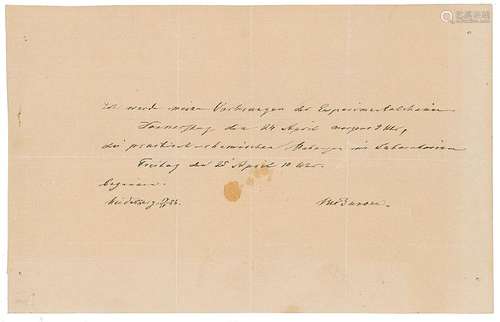 Ich werde meine Vorlesungen der Experimentalchemie
Donnerstag den 24 April morgens 9 Uhr,
die practisch-chemischen im Laboratorium
Freitag den 25 April 10 Uhr.
beginnen.
Heidelberg
RWBunsen.